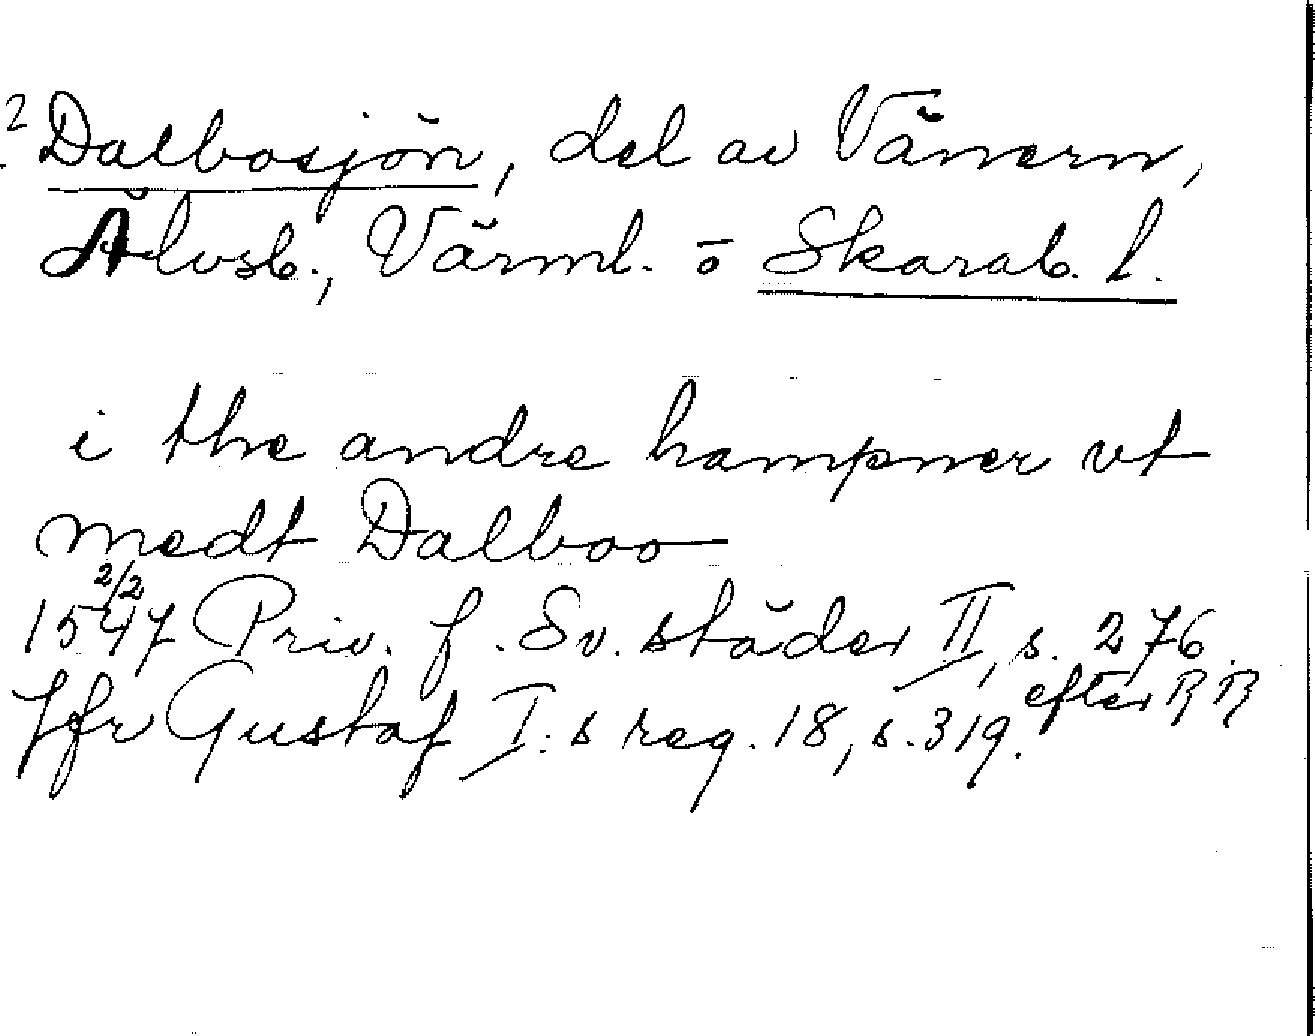 2 Dalbosjön, del av Vänern,
Älvsb., Värml. o Skarab. l.
i the andre hampner vt
medt Dalboo
2/2
1547 Priv. f. Sv. städer II, s. 276.
Jfr Gustaf I:s reg. 18, s. 319. efter RR